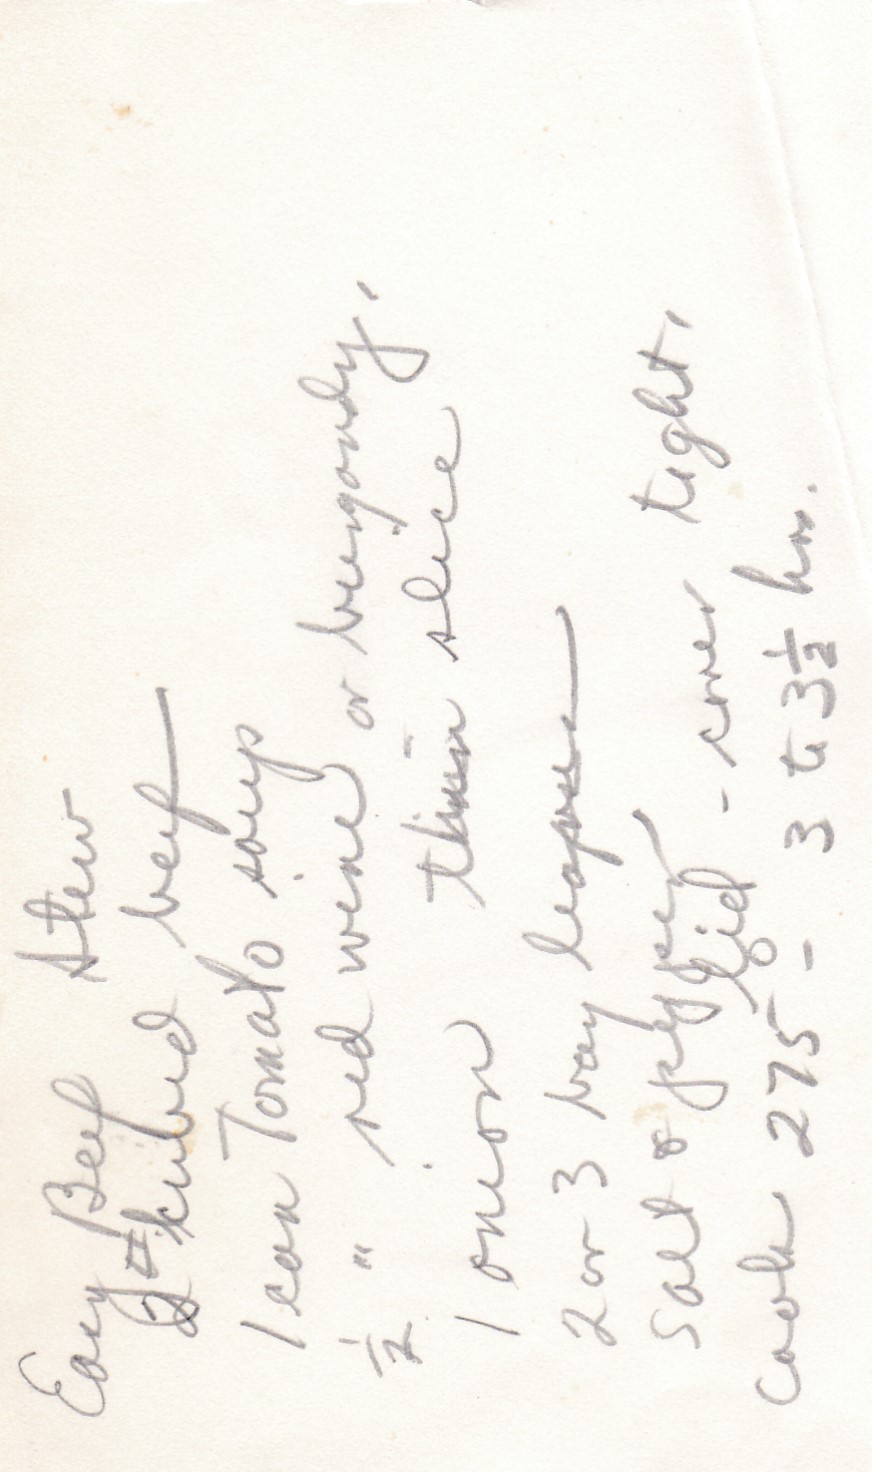 Easy Beef Stew
2# kubed beef
1 can Tomato soup
½ " red wine or burgandy,
1 onion thin slice
2 or 3 bay leaves
salt & pepper
Lid - cover tight.
Cook 275° - 3 to 3½ hrs.